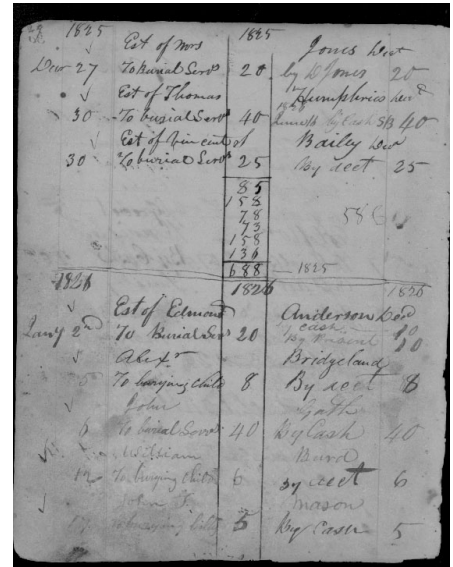 1825 1825
Est of Mrs Jones Decd
Decr 27 To Burial Servs 20 by D Jones 20
Est of Thomas Humphries Decd
30 To burial Servs 40 by Cash SB 40
Est of Vincent Bailey Decd
30 To burial Servs 25 By acct 25
85
158
78
73
158
136
688 1825
1826 1826 1826
Est of Edmond Anderson Decd
Jany 2nd To Burial Servs 20 By Cash 10
10
Alexr Bridgeland
To burying Child 8 By acct 8
John
6 To burial Servs 40 By Cash 40
William Burd
12 To burying Child 6 By acct 6
John Mason
To burying Child 5 By Cash 5